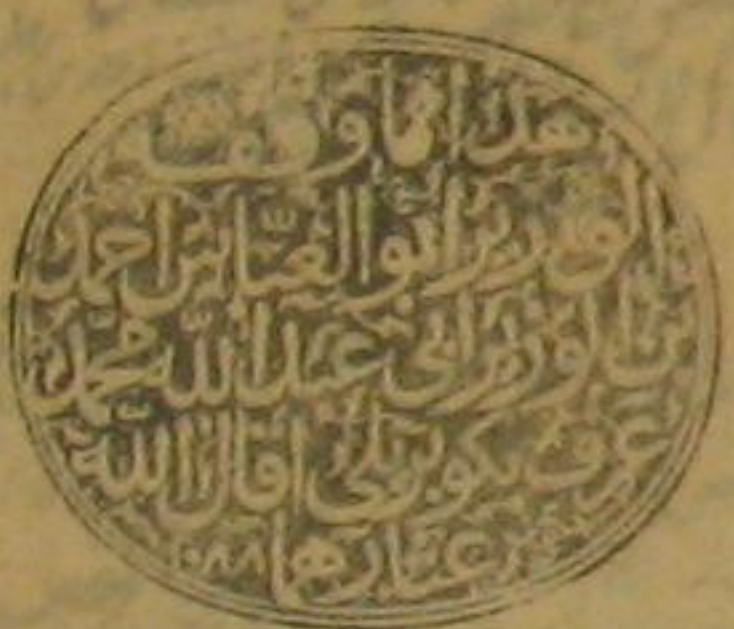 هذا مما وقف
الوزير ابو العباس احمد
بن الوزير ابى عبد الله محمد
عرف بكوبريلى اقال الله
عثارهما ١٠٨٨